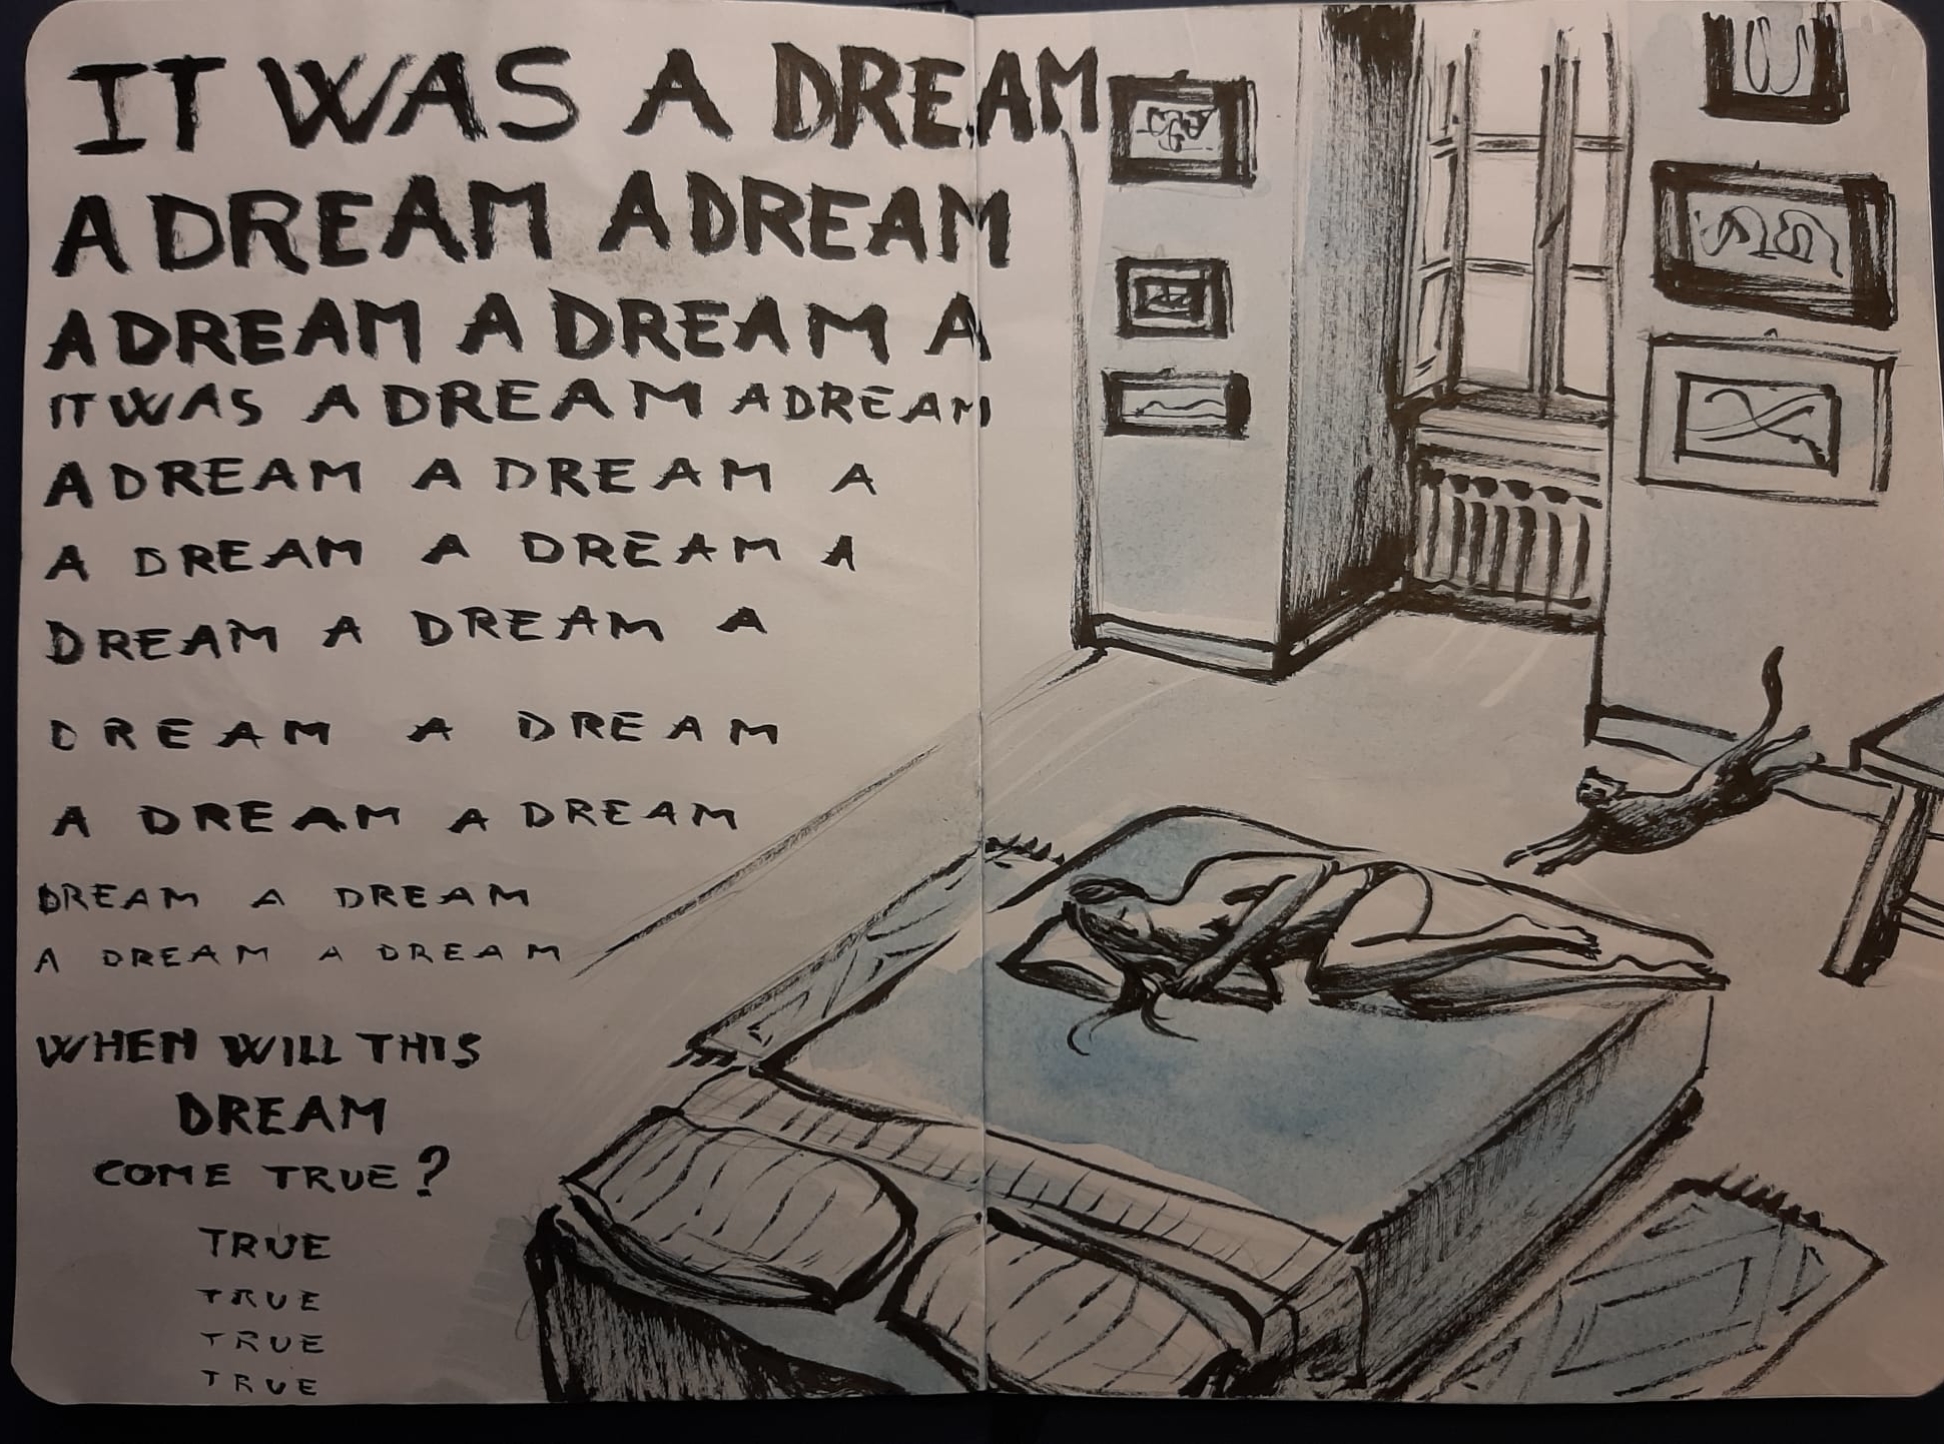 IT WAS A DREAM
A DREAM A DREAM
A DREAM A DREAM A
IT WAS A DREAM A DREAM
A DREAM A DREAM A
A DREAM A DREAM A
DREAM A DREAM A
DREAM A DREAM
A DREAM A DREAM
DREAM A DREAM
A DREAM A DREAM
WHEN WILL THIS
DREAM
COME TRUE?
TRUE
TRUE
TRUE
TRUE